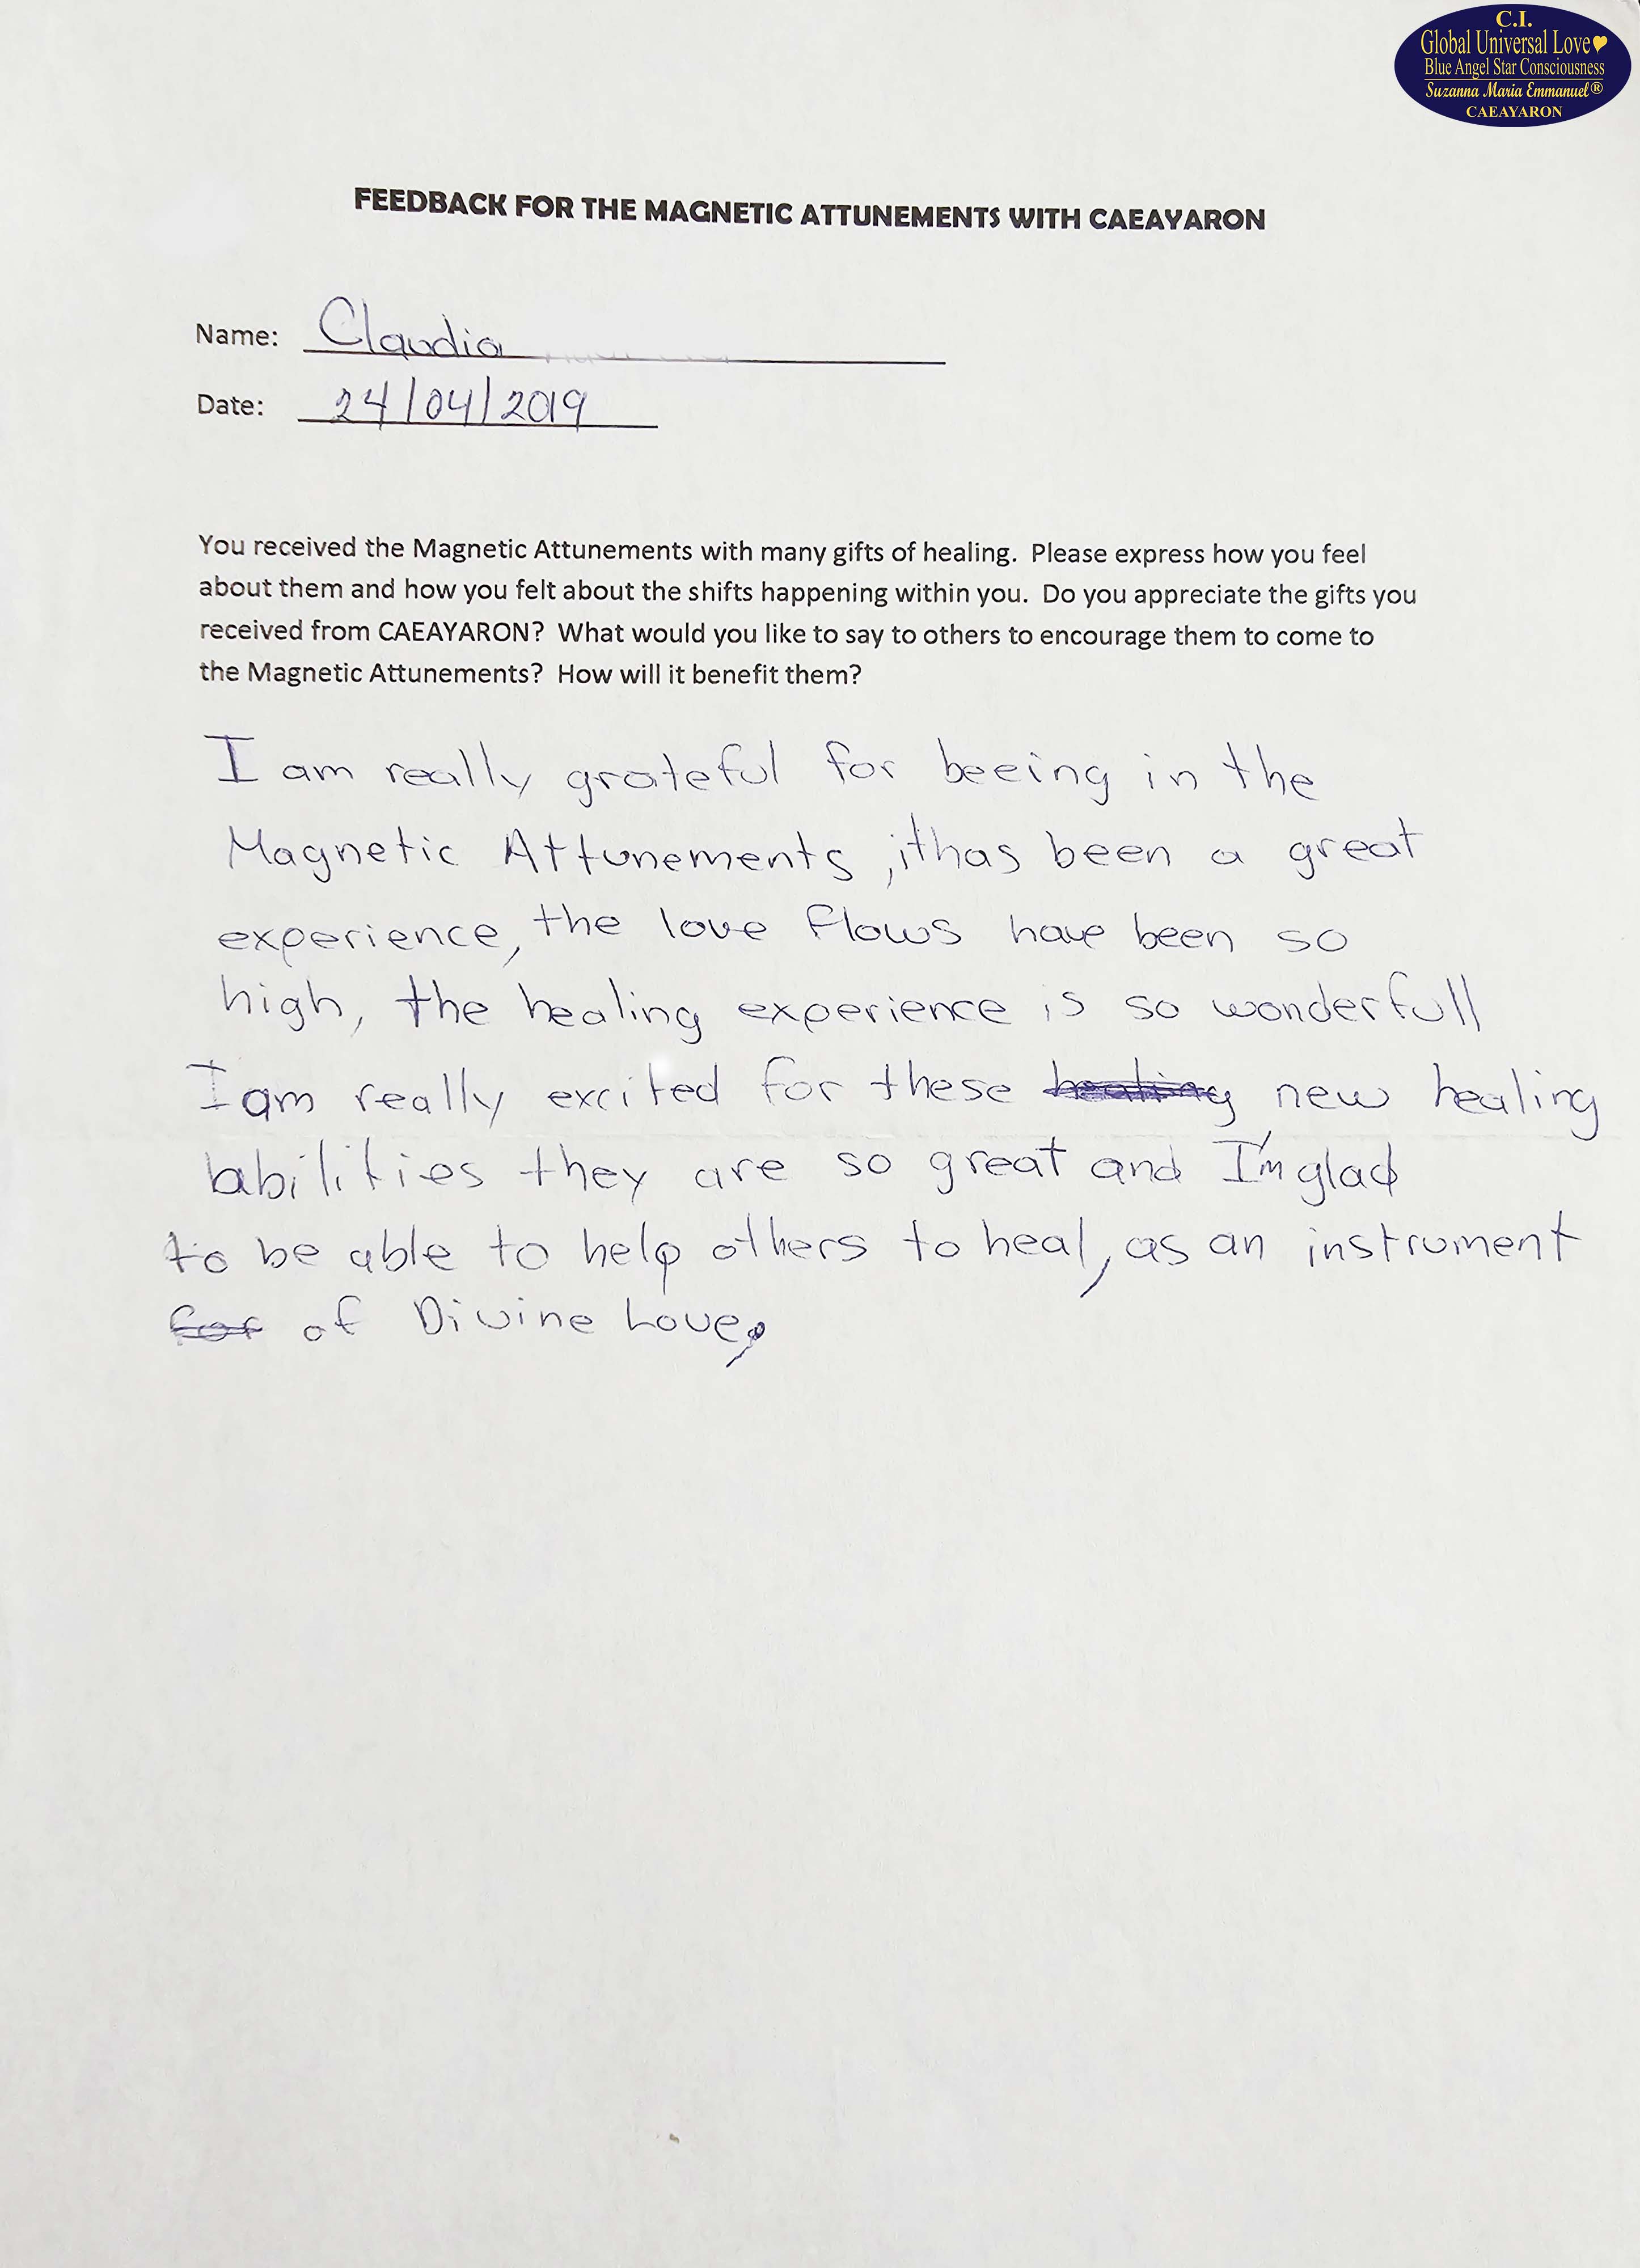 C.I.
Global Universal Love
Blue Angel Star Consciousness
Suzanna Maria Emmanuel®
CAEAYARON
FEEDBACK FOR THE MAGNETIC ATTUNEMENTS WITH CAEAYARON
Name: Claudia
Date: 24/04/2019
You received the Magnetic Attunements with many gifts of healing. Please express how you feel
about them and how you felt about the shifts happening within you. Do you appreciate the gifts you
received from CAEAYARON? What would you like to say to others to encourage them to come to
the Magnetic Attunements? How will it benefit them?
I am really grateful for beeing in the
Magnetic Attunements, it has been a great
experience, the love flows have been so
high, the healing experience is so wonderfull
I am really excited for these healing new healing
abilities they are so great and I'm glad
to be able to help others to heal, as an instrument
for of Divine Love,